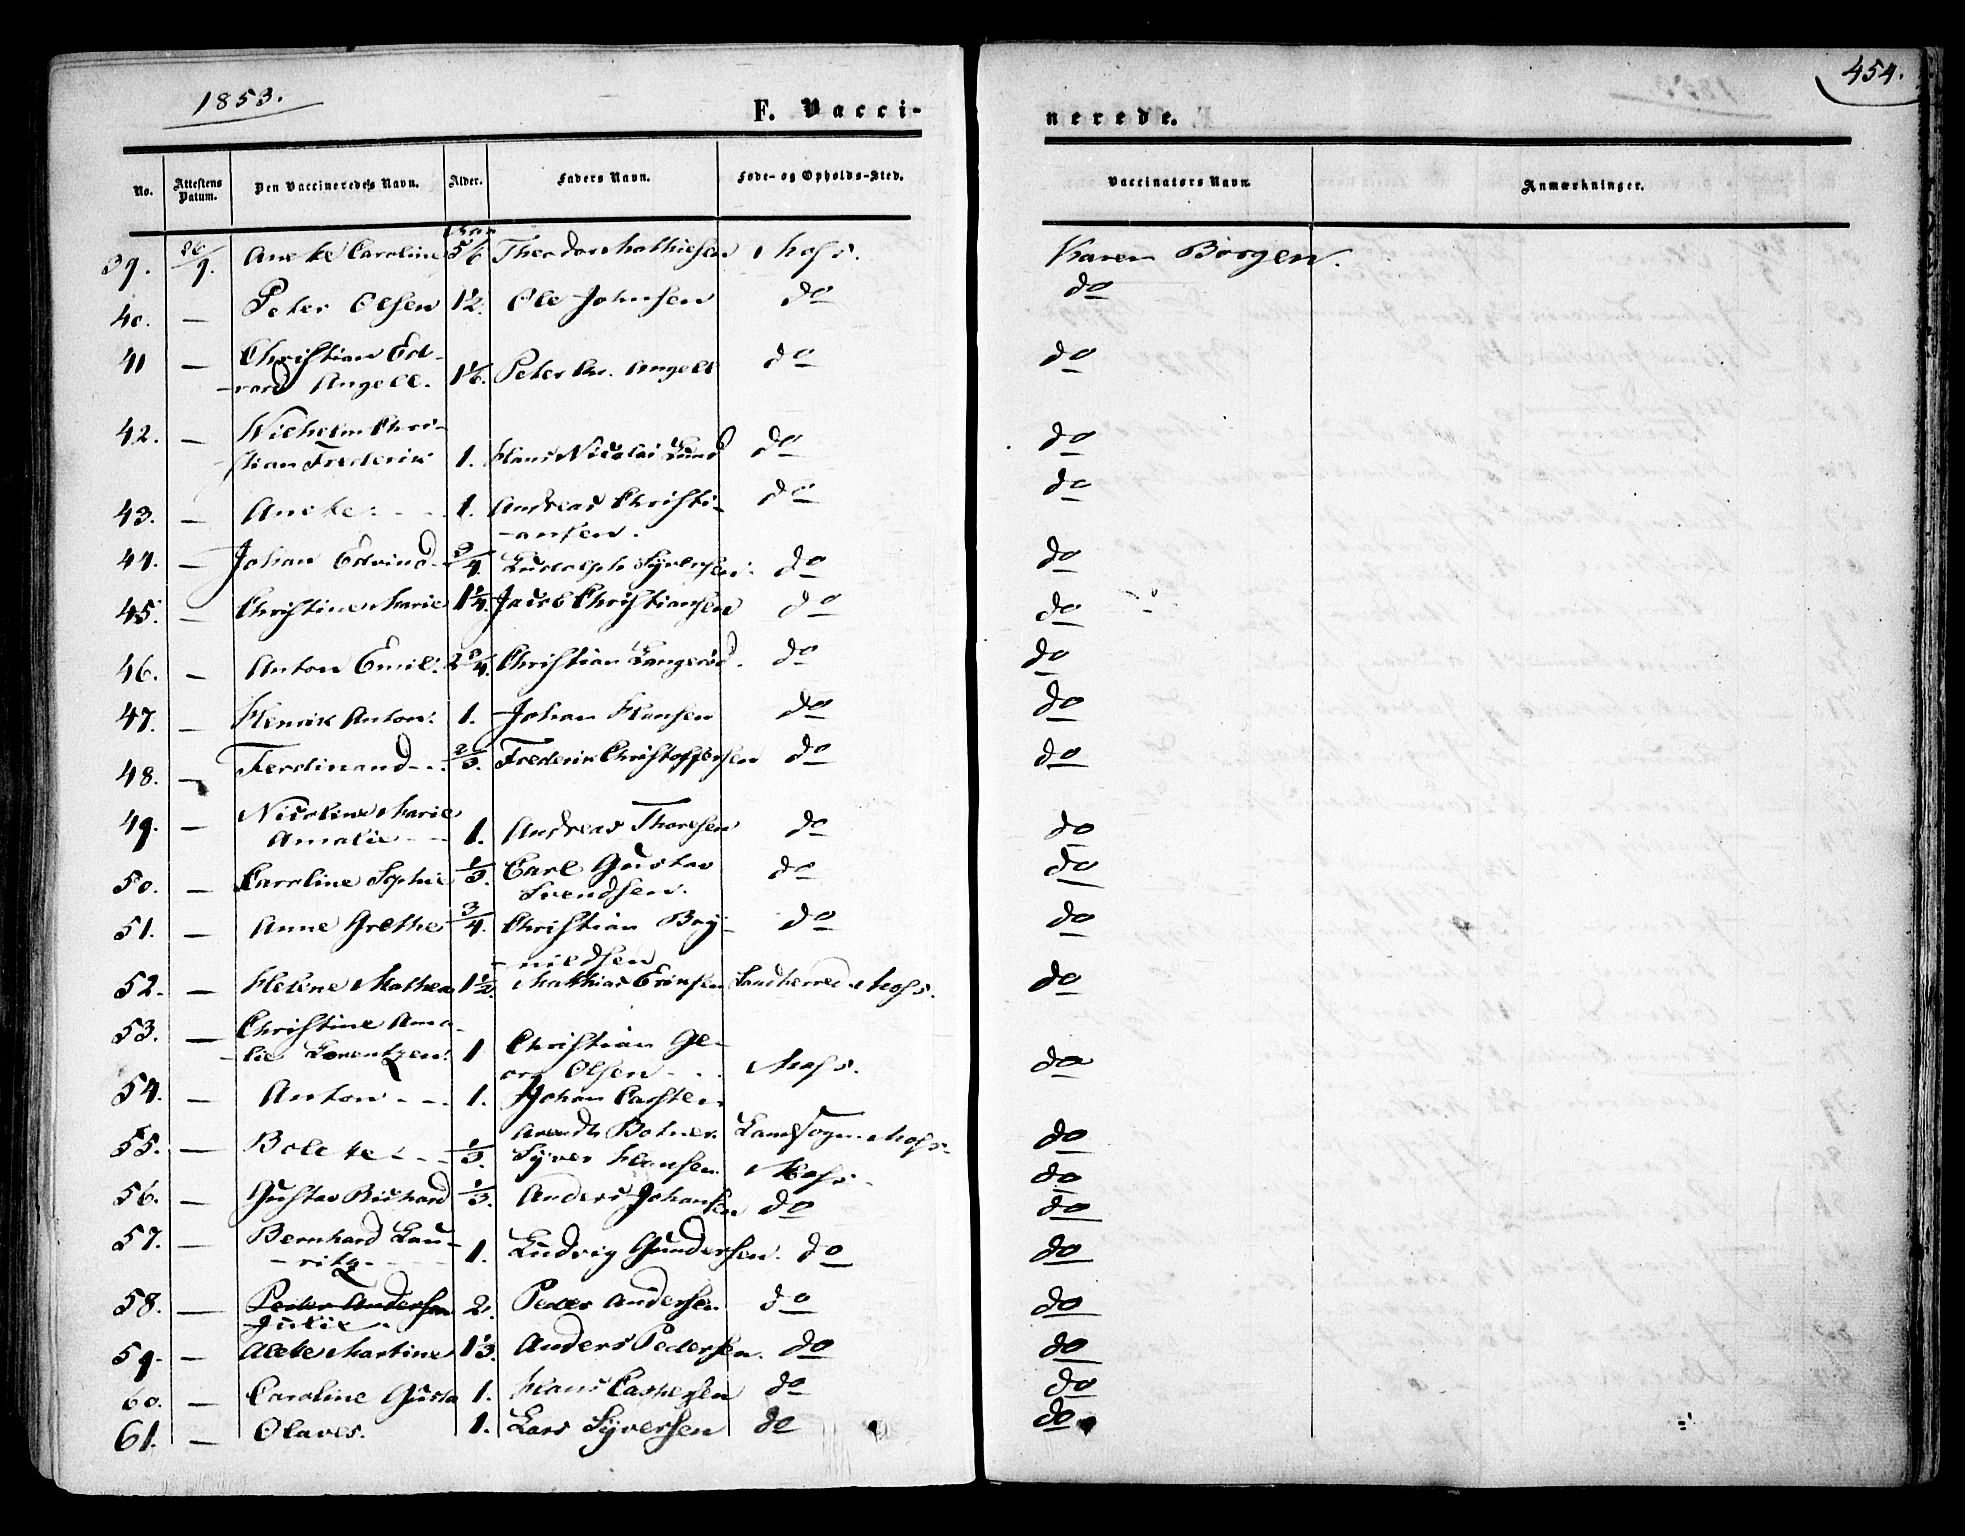 1853.
454.
F. Vacci-
nerede.
No. Attestens Datum. Den Vaccineredes Navn. Alder. Faders Navn. Føde- og Opholds-Sted. Vaccinators Navn. Anmærkninger.
39. 26/9. Anette Caroline 5/6 Theodor Mathiesen Moss. Karen Borgen.
40. — Peter Olsen 1½. Ole Johnsen do do
41 — Christian Ed-
vard Angell. 1⅙. Peter Chr. Angell do do
42. — Wilhelm Chri-
stian Frederik 1. Hans Nicolai Lund do do
43. — Anette 1. Andreas Christi-
-ansen. do do
44. — Johan Edvind 3/4. Ludolph Syversen do do
45. — Christine Marie 1¼. Jacob Christiansen do do
46. — Anton Emil. 2 3/4. Christian Langerød. do do
47. — Henrik Anton. 1. Johan Hansen do do
48. — Ferdinand 2/3. Frederik Christoffersen do do
49. — Nicoline Marie
Amalie 1. Andreas Thoresen do do
50. — Caroline Sophie 1/3. Carl Gustav
Svendsen. do do
51. — Anne Grethe 3/4. Christian Bøy-
-nildsen do do
52. — Helene Mathea 1½. Mathias Eriksen Landherred Moss. do
53. — Christine Ama-
-lie Lorentzen. 1 Christian Ge-
org Olsen Moss. do
54. — Anton 1. Johan Carsten
Arendt Botner Landsogn Moss. do
55. — Bolette 1/3. Syver Hansen Moss. do
56. — Gustav Richard 1/3. Anders Johansen do do
57. — Bernhard Lau-
-ritz 1. Ludvig Gundersen. do do
58. — Peder Andersen 2. Peder Andersen do do
Julie.
59. — Alette Martine 1⅓. Anders Pedersen. do do
60. — Caroline Gusta 1. Hans Caspersen do do
61. — Olaves. 1. Lars Syversen do do